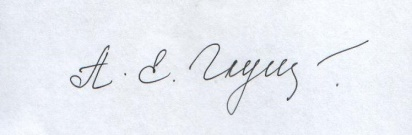 А. Е. Глущ